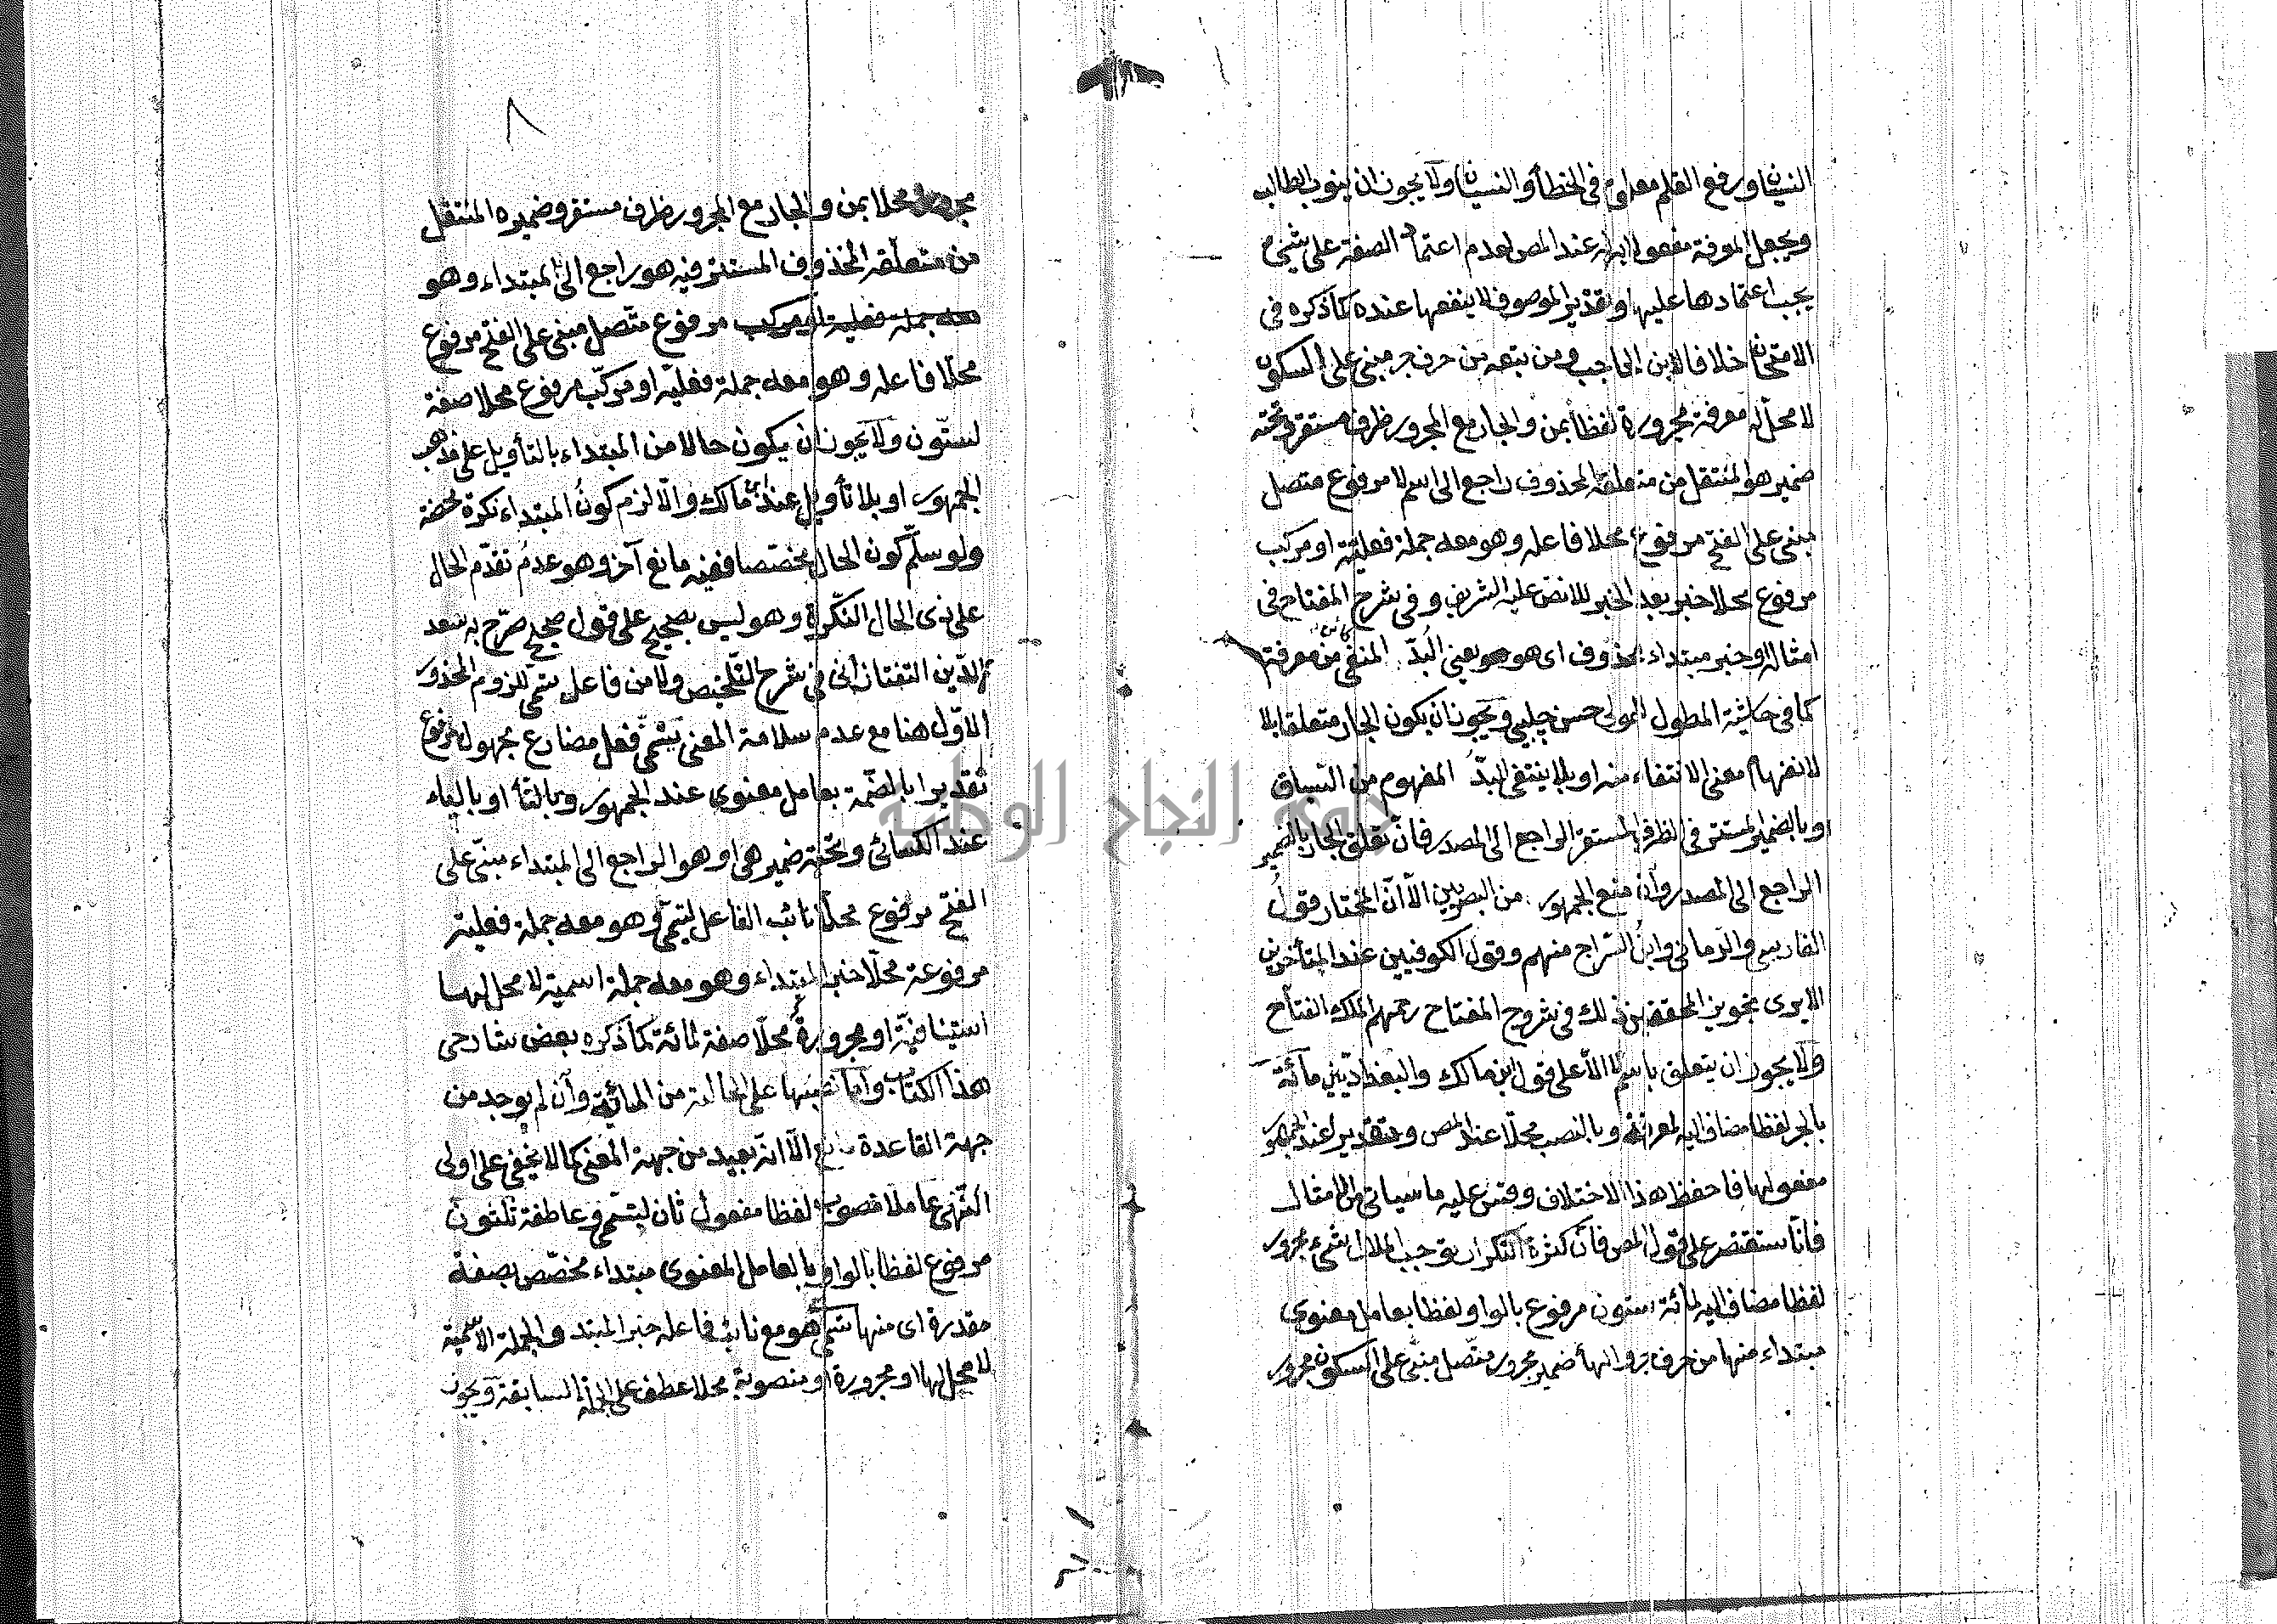 النسيان ورفع القلم معلوم في الخطأ والنسيان ولا يجوز ان ينوب الطالب
ويجعل المعرفة مفعولا به له عند المص لعدم اعتماد الصفة على شئ
يجب اعتمادها عليه او تقدير الموصوف لا ينفعها عنده كما ذكره في
الامتحان خلافا لابن الحاجب ومن تبعه من حرف جر مبني على السكون
لا محل له معرفة مجرورة لفظا بمن والجار مع المجرور ظرف مستقر تحته
ضمير هو المنتقل من متعلقه المحذوف راجع الى اسم لا مرفوع متصل
مبني على الفتح مرفوع محلا فاعله وهو معه جملة فعلية او مركب
مرفوع محلا خبر بعد الخبر للا نص عليه الشريف في شرح المفتاح في
امثاله او خبر مبتداء محذوف اى هو يعني البدّ المنفي كائن من معرفة
كما في حاشية المطول للمولى حسن چلبي ويجوز ان يكون الجار متعلقا بلا
لانفهام معنى الانتفاء منه او بلا ينتفي البدّ المفهوم من السياق
وبالضمير المستتر في الظرف المستقر الراجع الى المصدر فان تعلق الجار بالضمير
الراجع الى المصدر وان منع الجمهور من البصريين الّا انّ المختار قول
الفارسي والرماني وابن السّراج منهم وقول الكوفيين عند المتأخرين
الا يرى تجويز المحققين ذلك في شروح المفتاح رحمهم الملك الفتاح
ولا يجوز ان يتعلق باسم لا الّا على قول ابن مالك والبغداديين مائة
بالجر لفظا مضاف اليه لمعرفة وبالنصب محلّا عند المص وتقديرا عند الجمهور
مفعولها فاحفظ هذا الاختلاف وقس عليه ما سيأتي من الامثال
فانّا سنقتصر على قول المص فانّ كثرة التكرار يوجب الملال شئ مجرور
لفظا مضاف اليه لمائة ستون مرفوع بالواو لفظا بعامل معنوي
مبتداء منها من حرف جر والهاء ضمير مجرور متّصل مبنيّ على السكون مجرور
٨
مجرور محلا بمن والجار مع المجرور ظرف مستقر وضميره المنتقل
من متعلّقه المحذوف المستتر فيه هو راجع الى المبتداء وهو
معه جملة فعلية او مركب مرفوع متّصل مبني على الفتح مرفوع
محلّا فاعله وهو معه جملة فعليّة او مركّب مرفوع محلا صفة
لستّون ولا يجوز ان يكون حالا من المبتداء بالتأويل على مذهب
الجمهور او بلا تأويل عند ابن مالك والّا لزم كون المبتداء نكرة محضة
ولو سلّم كون الحال مخصّصا ففيه مانع آخر وهو عدم تقدّم الحال
على ذى الحال النكرة وهو ليس بصحيح على قول صحيح صرّح به سعد
الدّين التفتازاني في شرح التلخيص ولا من فاعل تسمّى للزوم المحذور
الاوّل هنا مع عدم سلامة المعنى تسمّى فعل مضارع مجهول مرفوع
تقديرا بالضمّة بعامل معنوي عند الجمهور وبالتاء او بالياء
عند الكسائى وتحته ضمير هي او هو الراجع الى المبتداء مبنيّ على
الفتح مرفوع محلّا نائب الفاعل لتسمّى وهو معه جملة فعلية
مرفوعة محلّا خبر المبتداء وهو معه جملة اسمية لا محل لها
استينافيّة او مجرورة محلّا صفة لمائة كما ذكره بعض شارحي
هذا الكتاب وامّا نصبها على الحالية من المائة وان لم يوجد من
جهة القاعدة مانع الّا انّه بعيد من جهة المعنى كما لا يخفى على اولى
النّهى عاملا منصوب لفظا مفعول ثان لتسمّى وعاطفة ثلثون
مرفوع لفظا بالواو بالعامل المعنوي مبتداء مخصّص بصفة
مقدرة اى منها تسمّى هو مع نائب فاعله خبر المبتداء والجملة الاسمية
لا محل لها او مجرورة او منصوبة محلا عطف على الجملة السابقة ويجوز
جامعة النجاح الوطنية